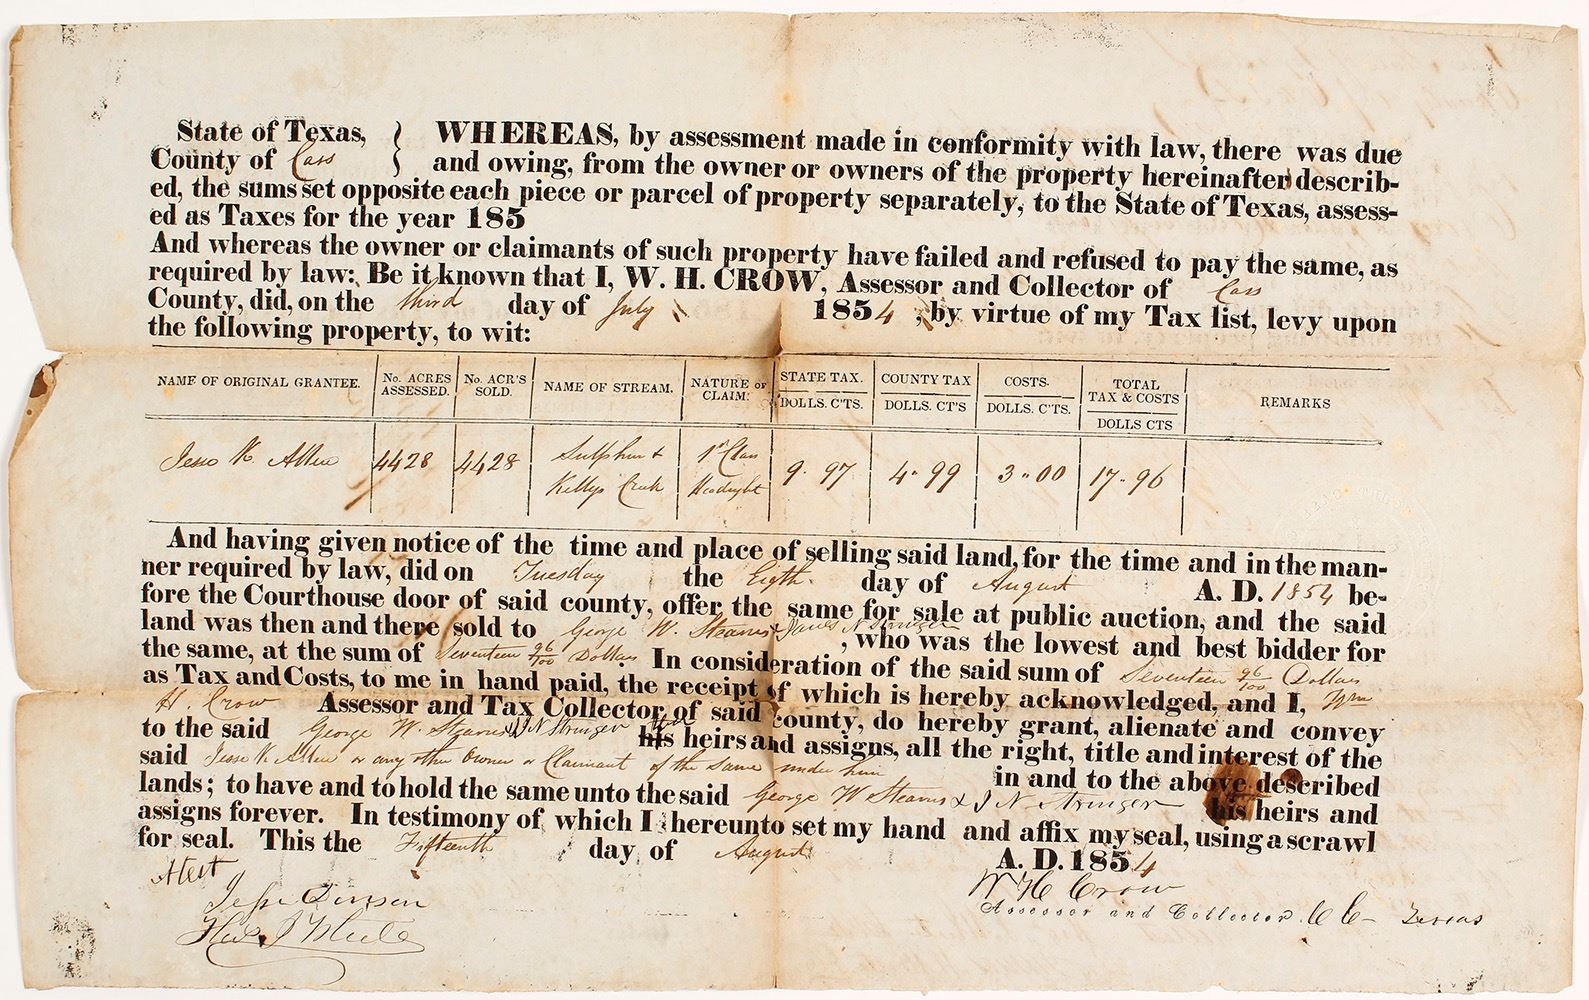 State of Texas, } WHEREAS, by assessment made in conformity with law, there was due
County of Cass } and owing, from the owner or owners of the property hereinafter describ-
ed, the sums set opposite each piece or parcel of property separately, to the State of Texas, assess-
ed as Taxes for the year 185
And whereas the owner or claimants of such property have failed and refused to pay the same, as
required by law: Be it known that I, W. H. CROW, Assessor and Collector of Cass
County, did, on the third day of July 1854, by virtue of my Tax list, levy upon
the following property, to wit:
NAME OF ORIGINAL GRANTEE. No. ACRES ASSESSED. No. ACR'S SOLD. NAME OF STREAM. NATURE OF CLAIM. STATE TAX. DOLLS. C'TS. COUNTY TAX DOLLS. CT'S COSTS. DOLLS. C'TS. TOTAL TAX & COSTS DOLLS CTS REMARKS
Jesse K. Allen 4428 4428 Sulphur & Kellys Creek 1st Class Headright 9. 97 4" 99 3" 00 17" 96
And having given notice of the time and place of selling said land, for the time and in the man-
ner required by law, did on Tuesday the Eigth day of August A. D. 1854 be-
fore the Courthouse door of said county, offer the same for sale at public auction, and the said
land was then and there sold to George W. Stearns & James N Stringer, who was the lowest and best bidder for
the same, at the sum of Seventeen 96/100 Dollars In consideration of the said sum of Seventeen 96/100 Dollars
as Tax and Costs, to me in hand paid, the receipt of which is hereby acknowledged, and I, Wm
H. Crow Assessor and Tax Collector of said county, do hereby grant, alienate and convey
to the said George W. Stearns & J N Stringer his heirs and assigns, all the right, title and interest of the
said Jesse K Allen or any other Owner or Claimant of the Same under him in and to the above described
lands; to have and to hold the same unto the said George W Stearns & J N Stringer his heirs and
assigns forever. In testimony of which I hereunto set my hand and affix my seal, using a scrawl
for seal. This the Fifteenth day of August A. D. 1854
Attest
W H Crow
Assessor and Collector C C Texas